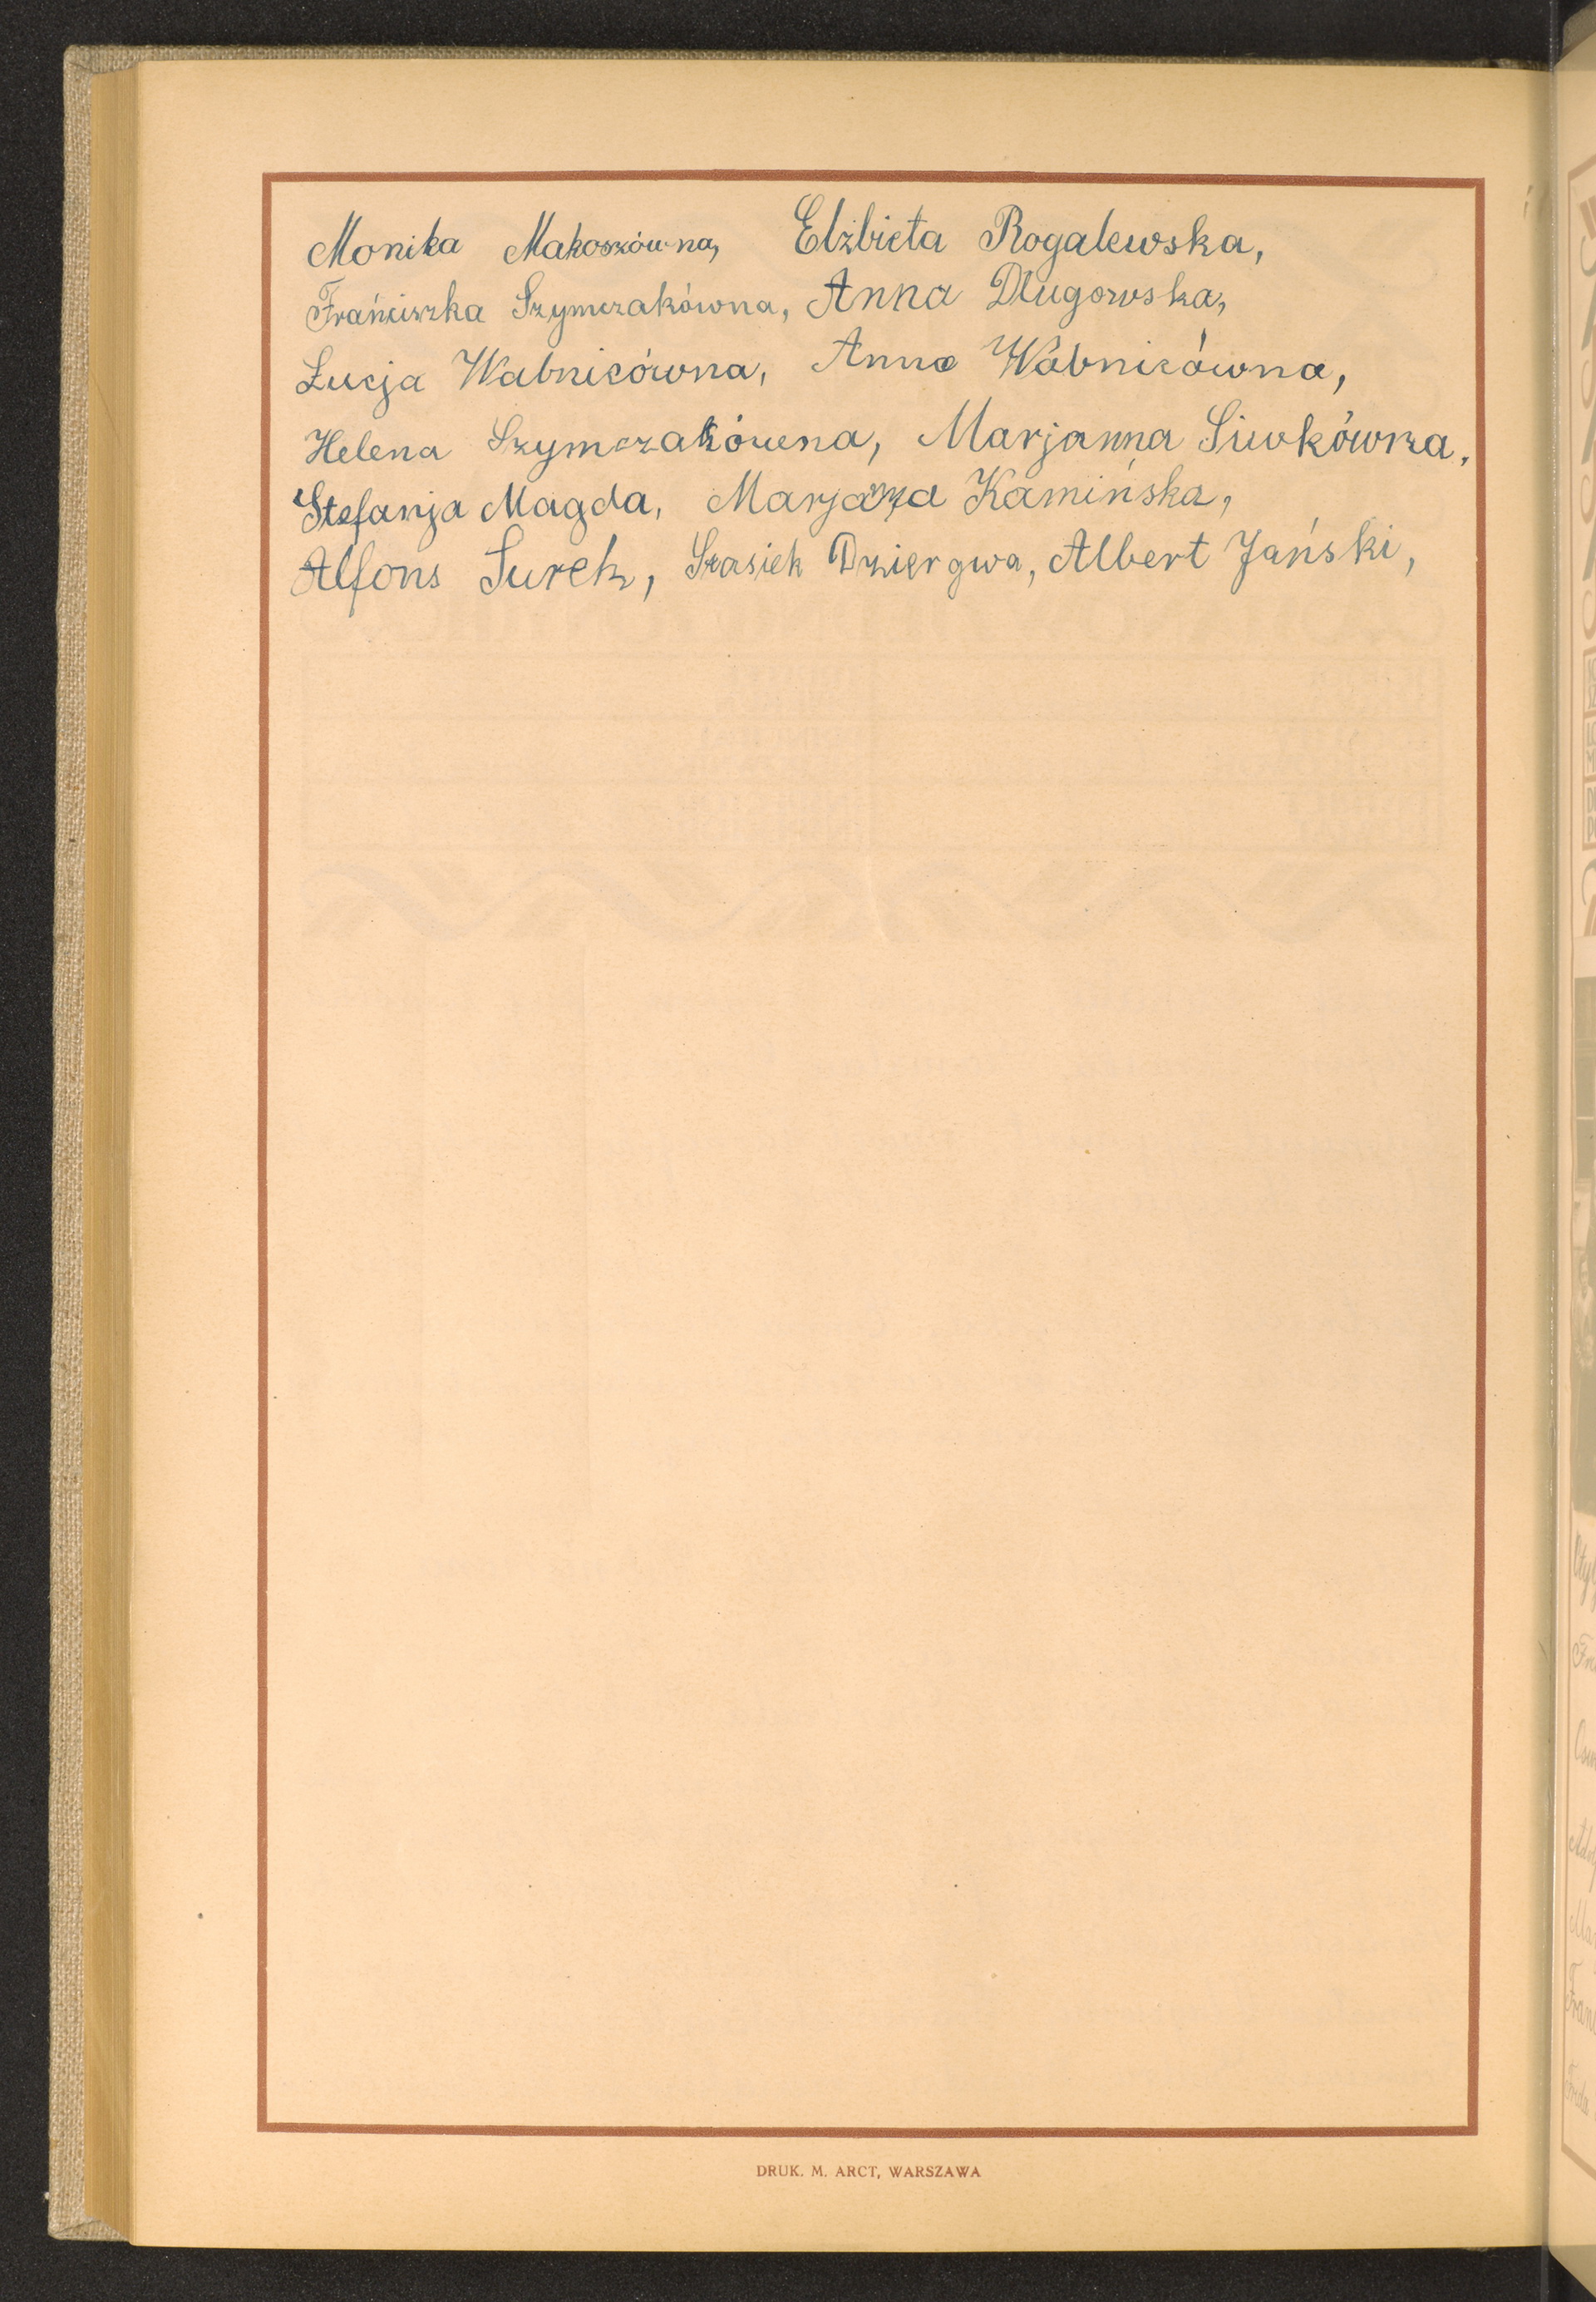 Monika Makoszówna, Elżbieta Rogalewska,
Frańciszka Szymczakówna, Anna Długowska,
Łucja Wabnicówna, Anna Wabnicówna,
Helena Szymczakówna, Marjanna Siwkówna,
Stefanja Magda, Marjanna Kamińska,
Alfons Surek, Stasiek Dziergwa, Albert Jański,
DRUK. M. ARCT, WARSZAWA